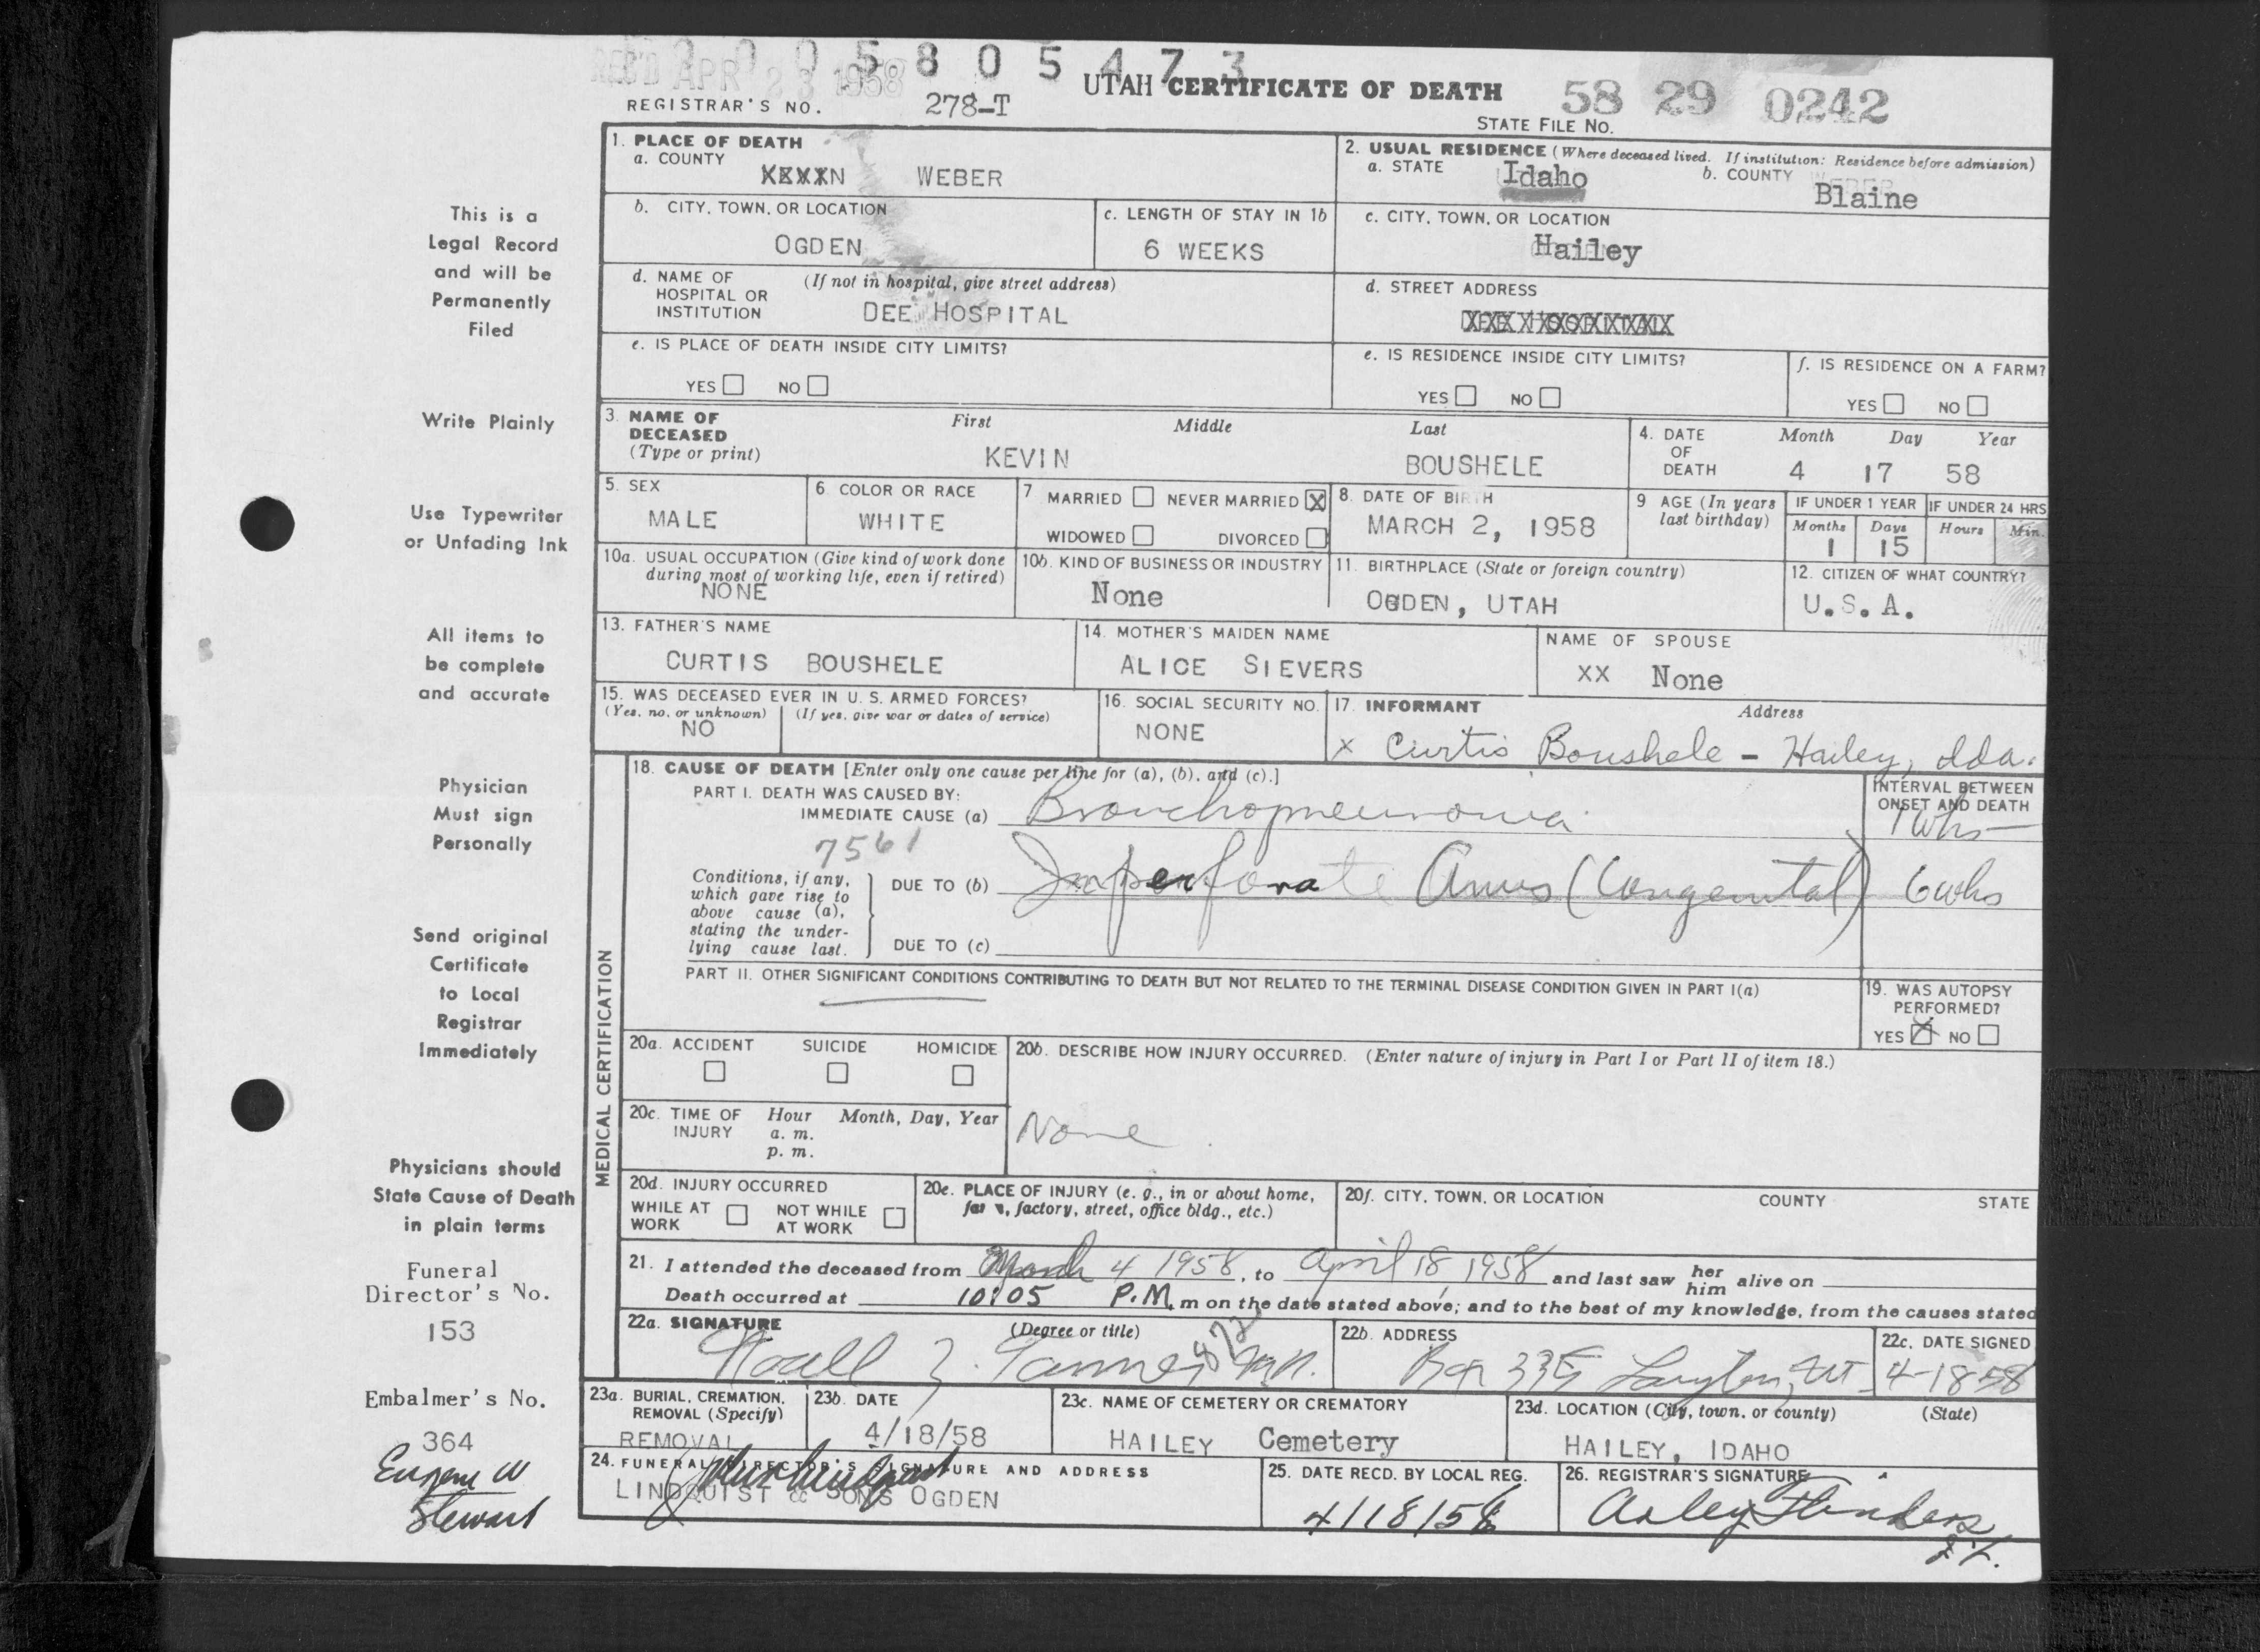 REC'D APR 23 1958 5 8 0 5 4 7 3
UTAH CERTIFICATE OF DEATH 58 29 0242
REGISTRAR'S NO. 278-T STATE FILE NO.
1. PLACE OF DEATH
a. COUNTY WEBER
2. USUAL RESIDENCE (Where deceased lived. If institution: Residence before admission)
a. STATE Idaho b. COUNTY Blaine
b. CITY, TOWN, OR LOCATION OGDEN
c. LENGTH OF STAY IN 1b 6 WEEKS
c. CITY, TOWN, OR LOCATION Hailey
d. NAME OF HOSPITAL OR INSTITUTION (If not in hospital, give street address)
DEE HOSPITAL
d. STREET ADDRESS
e. IS PLACE OF DEATH INSIDE CITY LIMITS?
YES NO
e. IS RESIDENCE INSIDE CITY LIMITS?
YES NO
f. IS RESIDENCE ON A FARM?
YES NO
3. NAME OF DECEASED (Type or print) First Middle Last
KEVIN BOUSHELE
4. DATE OF DEATH Month Day Year
4 17 58
5. SEX MALE
6 COLOR OR RACE WHITE
7 MARRIED NEVER MARRIED X
WIDOWED DIVORCED
8. DATE OF BIRTH MARCH 2, 1958
9 AGE (In years last birthday)
IF UNDER 1 YEAR IF UNDER 24 HRS
Months Days Hours Min.
1 15
10a. USUAL OCCUPATION (Give kind of work done during most of working life, even if retired)
NONE
10b. KIND OF BUSINESS OR INDUSTRY None
11. BIRTHPLACE (State or foreign country) OGDEN, UTAH
12. CITIZEN OF WHAT COUNTRY? U.S.A.
13. FATHER'S NAME CURTIS BOUSHELE
14. MOTHER'S MAIDEN NAME ALICE SIEVERS
NAME OF SPOUSE XX None
15. WAS DECEASED EVER IN U. S. ARMED FORCES?
(Yes, no, or unknown) (If yes, give war or dates of service)
NO
16. SOCIAL SECURITY NO. NONE
17. INFORMANT Address
x Curtis Boushele - Hailey, Ida.
MEDICAL CERTIFICATION
18. CAUSE OF DEATH [Enter only one cause per line for (a), (b), and (c).]
PART I. DEATH WAS CAUSED BY:
IMMEDIATE CAUSE (a) Bronchopneumonia
INTERVAL BETWEEN ONSET AND DEATH
1 wks
7561
Conditions, if any, which gave rise to above cause (a), stating the underlying cause last.
DUE TO (b) Imperforate Anus (Congenital) 6 wks
DUE TO (c)
PART II. OTHER SIGNIFICANT CONDITIONS CONTRIBUTING TO DEATH BUT NOT RELATED TO THE TERMINAL DISEASE CONDITION GIVEN IN PART I(a)
19. WAS AUTOPSY PERFORMED?
YES X NO
20a. ACCIDENT SUICIDE HOMICIDE
20b. DESCRIBE HOW INJURY OCCURRED. (Enter nature of injury in Part I or Part II of item 18.)
None
20c. TIME OF INJURY Hour Month, Day, Year
a. m.
p. m.
20d. INJURY OCCURRED
WHILE AT WORK NOT WHILE AT WORK
20e. PLACE OF INJURY (e. g., in or about home, farm, factory, street, office bldg., etc.)
20f. CITY, TOWN, OR LOCATION COUNTY STATE
21. I attended the deceased from March 4 1958, to April 18, 1958 and last saw her him alive on
Death occurred at 10:05 P.M. m on the date stated above; and to the best of my knowledge, from the causes stated
22a. SIGNATURE (Degree or title)
Noall Z. Tanner M.D.
22b. ADDRESS Box 335 Layton, Ut
22c. DATE SIGNED 4-18-58
23a. BURIAL, CREMATION, REMOVAL (Specify) REMOVAL
23b. DATE 4/18/58
23c. NAME OF CEMETERY OR CREMATORY HAILEY Cemetery
23d. LOCATION (City, town, or county) (State)
HAILEY, IDAHO
24. FUNERAL DIRECTOR'S SIGNATURE AND ADDRESS
LINDQUIST & SONS OGDEN
25. DATE RECD. BY LOCAL REG. 4/18/58
26. REGISTRAR'S SIGNATURE
Arley Flinders
This is a
Legal Record
and will be
Permanently
Filed
Write Plainly
Use Typewriter
or Unfading Ink
All items to
be complete
and accurate
Physician
Must sign
Personally
Send original
Certificate
to Local
Registrar
Immediately
Physicians should
State Cause of Death
in plain terms
Funeral
Director's No.
153
Embalmer's No.
364
Eugene W
Stewart